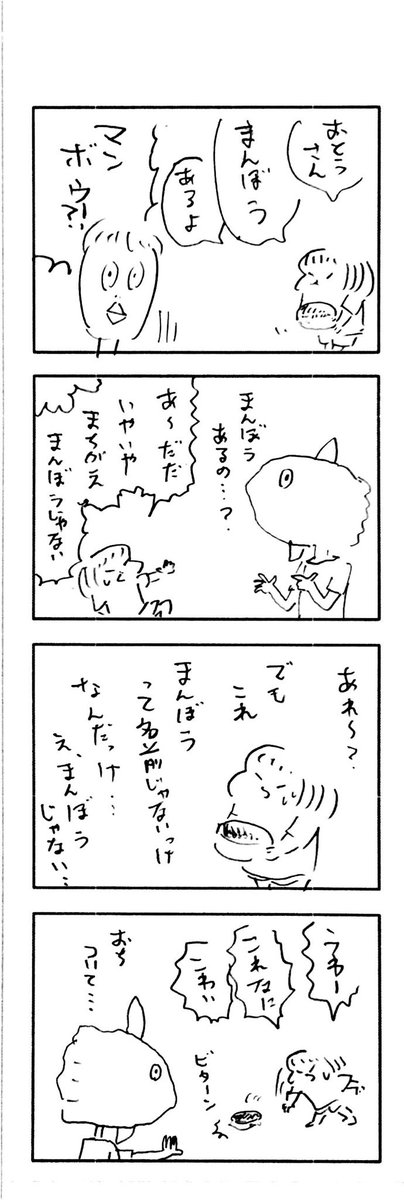 おとう
さん
まんぼう
あるよ
マン
ボウ?!
まんぼう
あるの…?
あ〜だだ
いやいや
まちがえ
まんぼうじゃない
あれ〜?
でも
これ
まんぼう
って名前じゃないっけ
なんだっけ…
え、まんぼう
じゃない…
うわー
これなに
こわい
ビターン
おち
ついて…